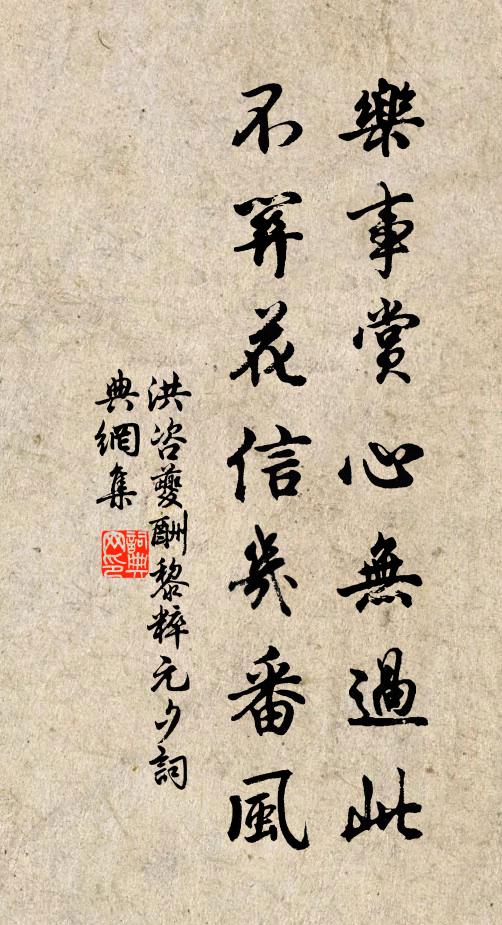 樂事賞心無過此
不算花信幾番風
洪咨夔酬黎粹元夕詞
典網集
詞典
网印